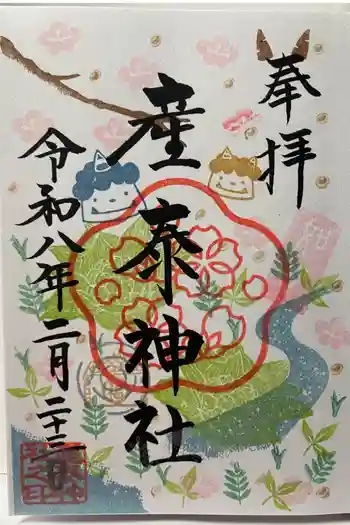 奉拝
産泰神社
令和八年二月二十三日